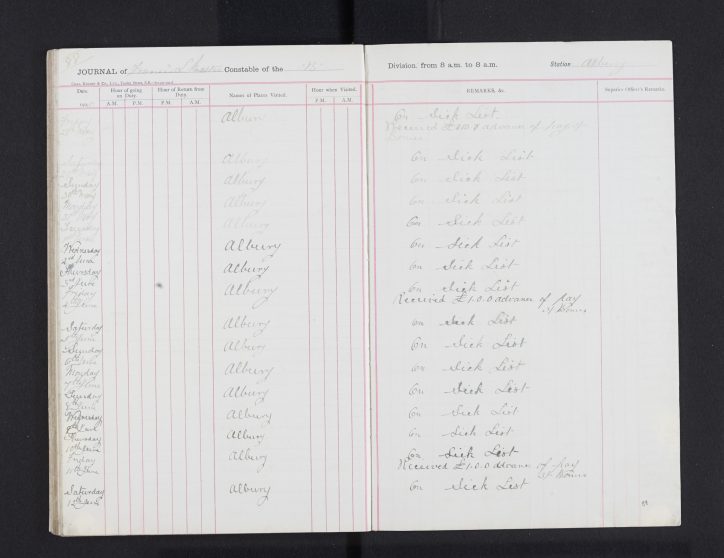 JOURNAL of Francis Constable of the "B" Division. from 8 a.m. to 8 a.m. Station Albury
Date. Hour of going on Duty. Hour of Return from Duty. Names of Places Visited. Hour when Visited. REMARKS, &c. Superior Officer's Remarks.
A.M. P.M. P.M. A.M. P.M. A.M.
Albury On Sick List
Received advance of pay of
Albury On Sick List
Sunday Albury On Sick List
30th May
Monday Albury On Sick List
Tuesday Albury On Sick List
Wednesday Albury On Sick List
2nd June
Thursday Albury On Sick List
3rd June
Friday Albury On Sick List
4th June Received £1.0.0 advance of pay
Saturday Albury On Sick List
5th June
Sunday Albury On Sick List
6th June
Monday Albury On Sick List
7th June
Tuesday Albury On Sick List
8th June
Wednesday Albury On Sick List
9th June
Thursday Albury On Sick List
10th June
Friday Albury On Sick List
11th June Received £1.0.0 advance of pay
Saturday Albury On Sick List
12th June